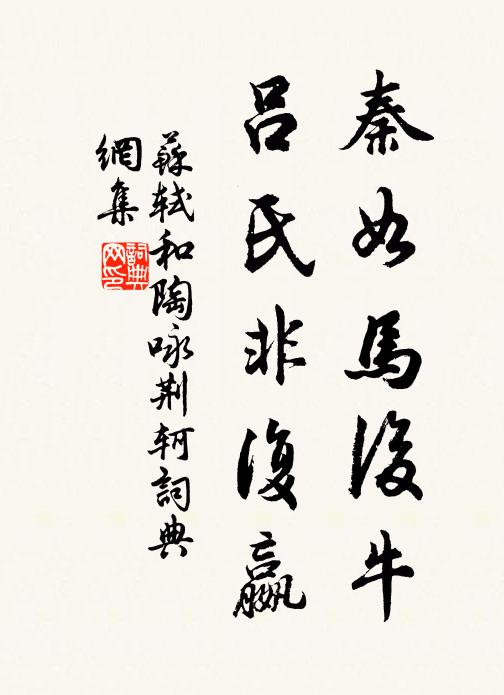 秦如馬後牛
吕氏非復嬴
蘇軾和陶咏荆軻詞典
網集
詞典
网印